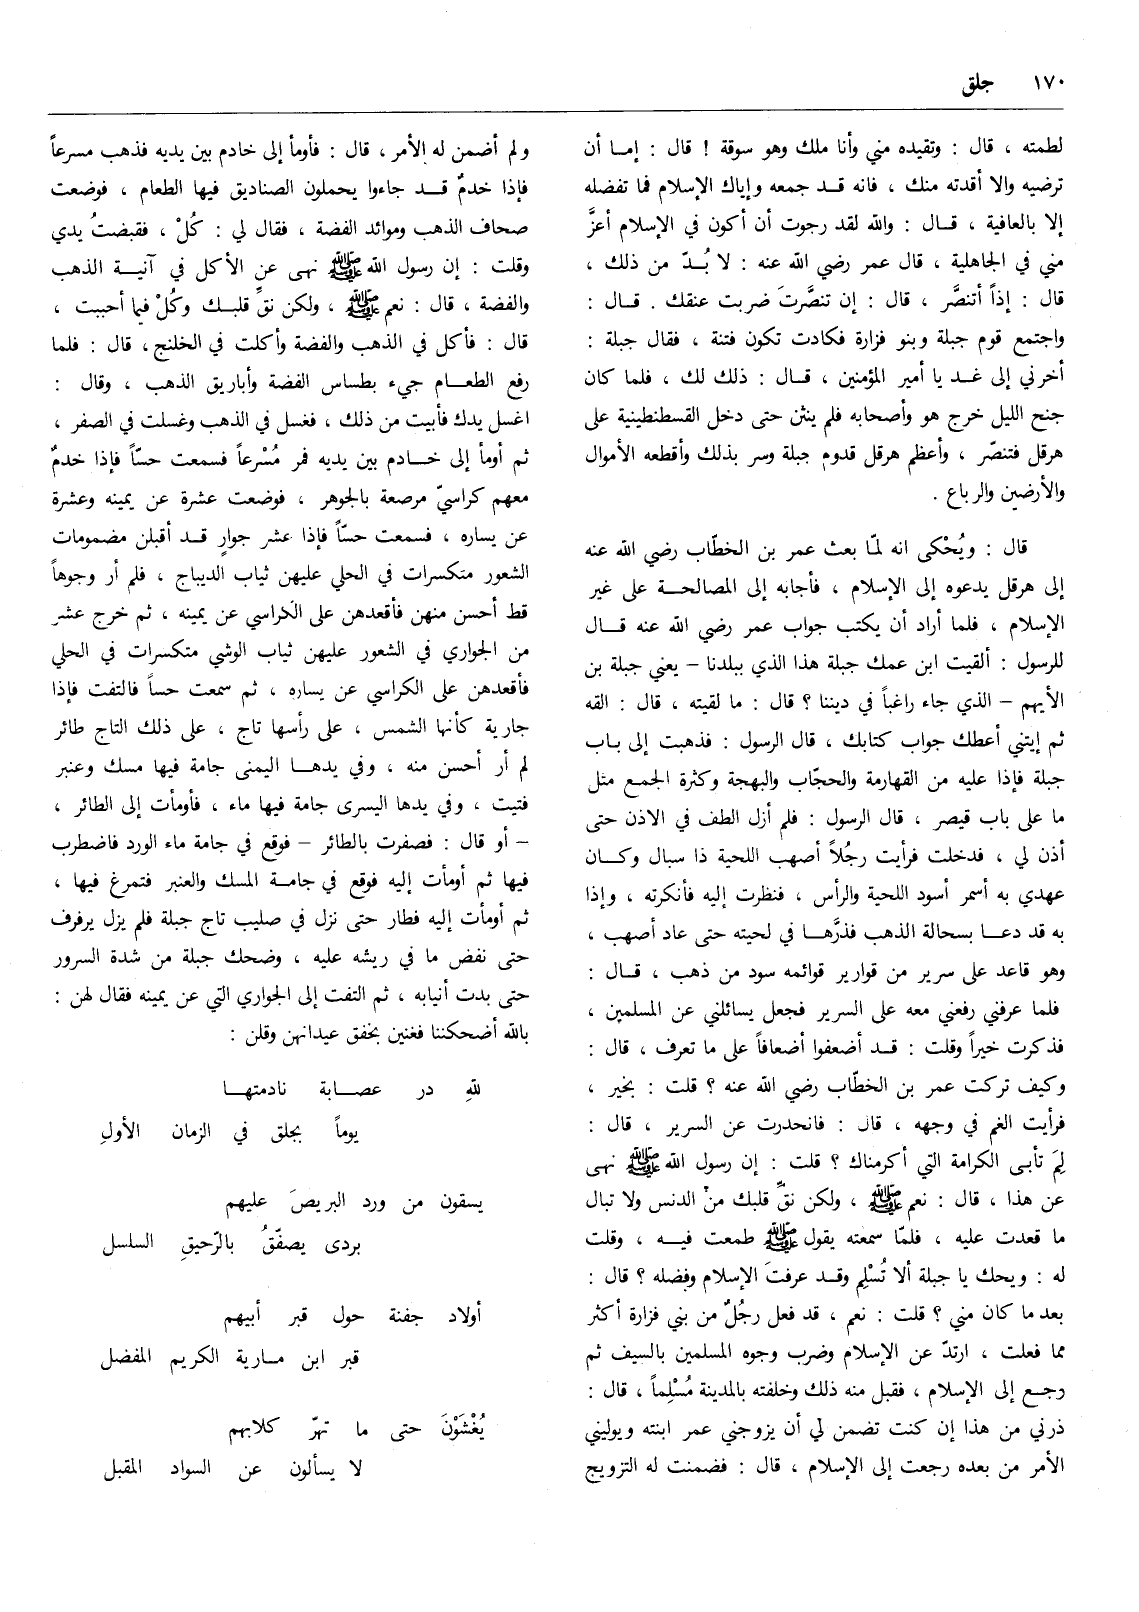 ١٧٠ جلق
لطمته ، قال : وتقيده مني وأنا ملك وهو سوقة ! قال : إما أن
ترضيه والا أقدته منك ، فانه قد جمعه وإياك الإسلام فما تفضله
إلا بالعافية ، قال : والله لقد رجوت أن أكون في الإسلام أعزَّ
مني في الجاهلية ، قال عمر رضي الله عنه : لا بُدّ من ذلك ،
قال : إذاً أتنصَّر ، قال : إن تنصَّرتَ ضربت عنقك . قال :
واجتمع قوم جبلة وبنو فزارة فكادت تكون فتنة ، فقال جبلة :
أخرني إلى غد يا أمير المؤمنين ، قال : ذلك لك ، فلما كان
جنح الليل خرج هو وأصحابه فلم ينثن حتى دخل القسطنطينية على
هرقل فتنصّر ، وأعظم هرقل قدوم جبلة وسر بذلك وأقطعه الأموال
والأرضين والرباع .
قال : ويُحْكى انه لمّا بعث عمر بن الخطّاب رضي الله عنه
إلى هرقل يدعوه إلى الإسلام ، فأجابه إلى المصالحة على غير
الإسلام ، فلما أراد أن يكتب جواب عمر رضي الله عنه قال
للرسول : ألقيت ابن عمك جبلة هذا الذي ببلدنا – يعني جبلة بن
الأيهم – الذي جاء راغباً في ديننا ؟ قال : ما لقيته ، قال : القه
ثم إيتني أعطك جواب كتابك ، قال الرسول : فذهبت إلى باب
جبلة فإذا عليه من القهارمة والحجّاب والبهجة وكثرة الجمع مثل
ما على باب قيصر ، قال الرسول : فلم أزل الطف في الاذن حتى
أذن لي ، فدخلت فرأيت رجُلاً أصهب اللحية ذا سبال وكان
عهدي به أسمر أسود اللحية والرأس ، فنظرت إليه فأنكرته ، وإذا
به قد دعا بسحالة الذهب فذرَّها في لحيته حتى عاد أصهب ،
وهو قاعد على سرير من قوارير قوائمه سود من ذهب ، قال :
فلما عرفني رفعني معه على السرير فجعل يسائلني عن المسلمين ،
فذكرت خيراً وقلت : قد أضعفوا أضعافاً على ما تعرف ، قال :
وكيف تركت عمر بن الخطّاب رضي الله عنه ؟ قلت : بخير ،
فرأيت الغم في وجهه ، قال : فانحدرت عن السرير ، قال :
لِمَ تأبى الكرامة التي أكرمناك ؟ قلت : إن رسول الله ﷺ نهى
عن هذا ، قال : نعم ﷺ ، ولكن نقِّ قلبك منْ الدنس ولا تبال
ما قعدت عليه ، فلمّا سمعته يقول ﷺ طمعت فيه ، وقلت
له : ويحك يا جبلة ألا تُسْلِم وقد عرفتَ الإسلام وفضله ؟ قال :
بعد ما كان مني ؟ قلت : نعم ، قد فعل رجُلٌ من بني فزارة أكثر
مما فعلت ، ارتدّ عن الإسلام وضرب وجوه المسلمين بالسيف ثم
رجع إلى الإسلام ، فقبل منه ذلك وخلفته بالمدينة مُسْلِماً ، قال :
ذرني من هذا إن كنت تضمن لي أن يزوجني عمر ابنته ويوليني
الأمر من بعده رجعت إلى الإسلام ، قال : فضمنت له التزويج
ولم أضمن له الأمر ، قال : فأومأ إلى خادم بين يديه فذهب مسرعاً
فإذا خدمٌ قد جاءوا يحملون الصناديق فيها الطعام ، فوضعت
صحاف الذهب وموائد الفضة ، فقال لي : كُلْ ، فقبضتُ يدي
وقلت : إن رسول الله ﷺ نهى عن الأكل في آنية الذهب
والفضة ، قال : نعم ﷺ ، ولكن نقِّ قلبك وكُلْ فيما أحببت ،
قال : فأكل في الذهب والفضة وأكلت في الخلنج، قال : فلما
رفع الطعام جيء بطساس الفضة وأباريق الذهب ، وقال :
اغسل يدك فأبيت من ذلك ، فغسل في الذهب وغسلت في الصفر ،
ثم أومأ إلى خادم بين يديه فمر مُسْرعاً فسمعت حسّاً فإذا خدمٌ
معهم كراسيّ مرصعة بالجوهر ، فوضعت عشرة عن يمينه وعشرة
عن يساره ، فسمعت حسّاً فإذا عشر جوارٍ قد أقبلن مضمومات
الشعور متكسرات في الحلي عليهن ثياب الديباج ، فلم أر وجوهاً
قط أحسن منهن فأقعدهن على الكراسي عن يمينه ، ثم خرج عشر
من الجواري في الشعور عليهن ثياب الوشي متكسرات في الحلي
فأقعدهن على الكراسي عن يساره ، ثم سمعت حساً فالتفت فإذا
جارية كأنها الشمس ، على رأسها تاج ، على ذلك التاج طائر
لم أر أحسن منه ، وفي يدها اليمنى جامة فيها مسك وعنبر
فتيت ، وفي يدها اليسرى جامة فيها ماء ، فأومأت إلى الطائر ،
– أو قال : فصفرت بالطائر – فوقع في جامة ماء الورد فاضطرب
فيها ثم أومأت إليه فوقع في جامة المسك والعنبر فتمرغ فيها ،
ثم أومأت إليه فطار حتى نزل في صليب تاج جبلة فلم يزل يرفرف
حتى نفض ما في ريشه عليه ، وضحك جبلة من شدة السرور
حتى بدت أنيابه ، ثم التفت إلى الجواري التي عن يمينه فقال لهن :
بالله أضحكننا فغنين بخفق عيدانهن وقلن :
للهِ در عصابة نادمتها
يوماً بجلق في الزمان الأولِ
يسقون من ورد البريصَ عليهم
بردى يصفّقُ بالرّحيقِ السلسل
أولاد جفنة حول قبر أبيهم
قبر ابن مارية الكريم المفضل
يُغْشَوْنَ حتى ما تهرّ كلابهم
لا يسألون عن السواد المقبل